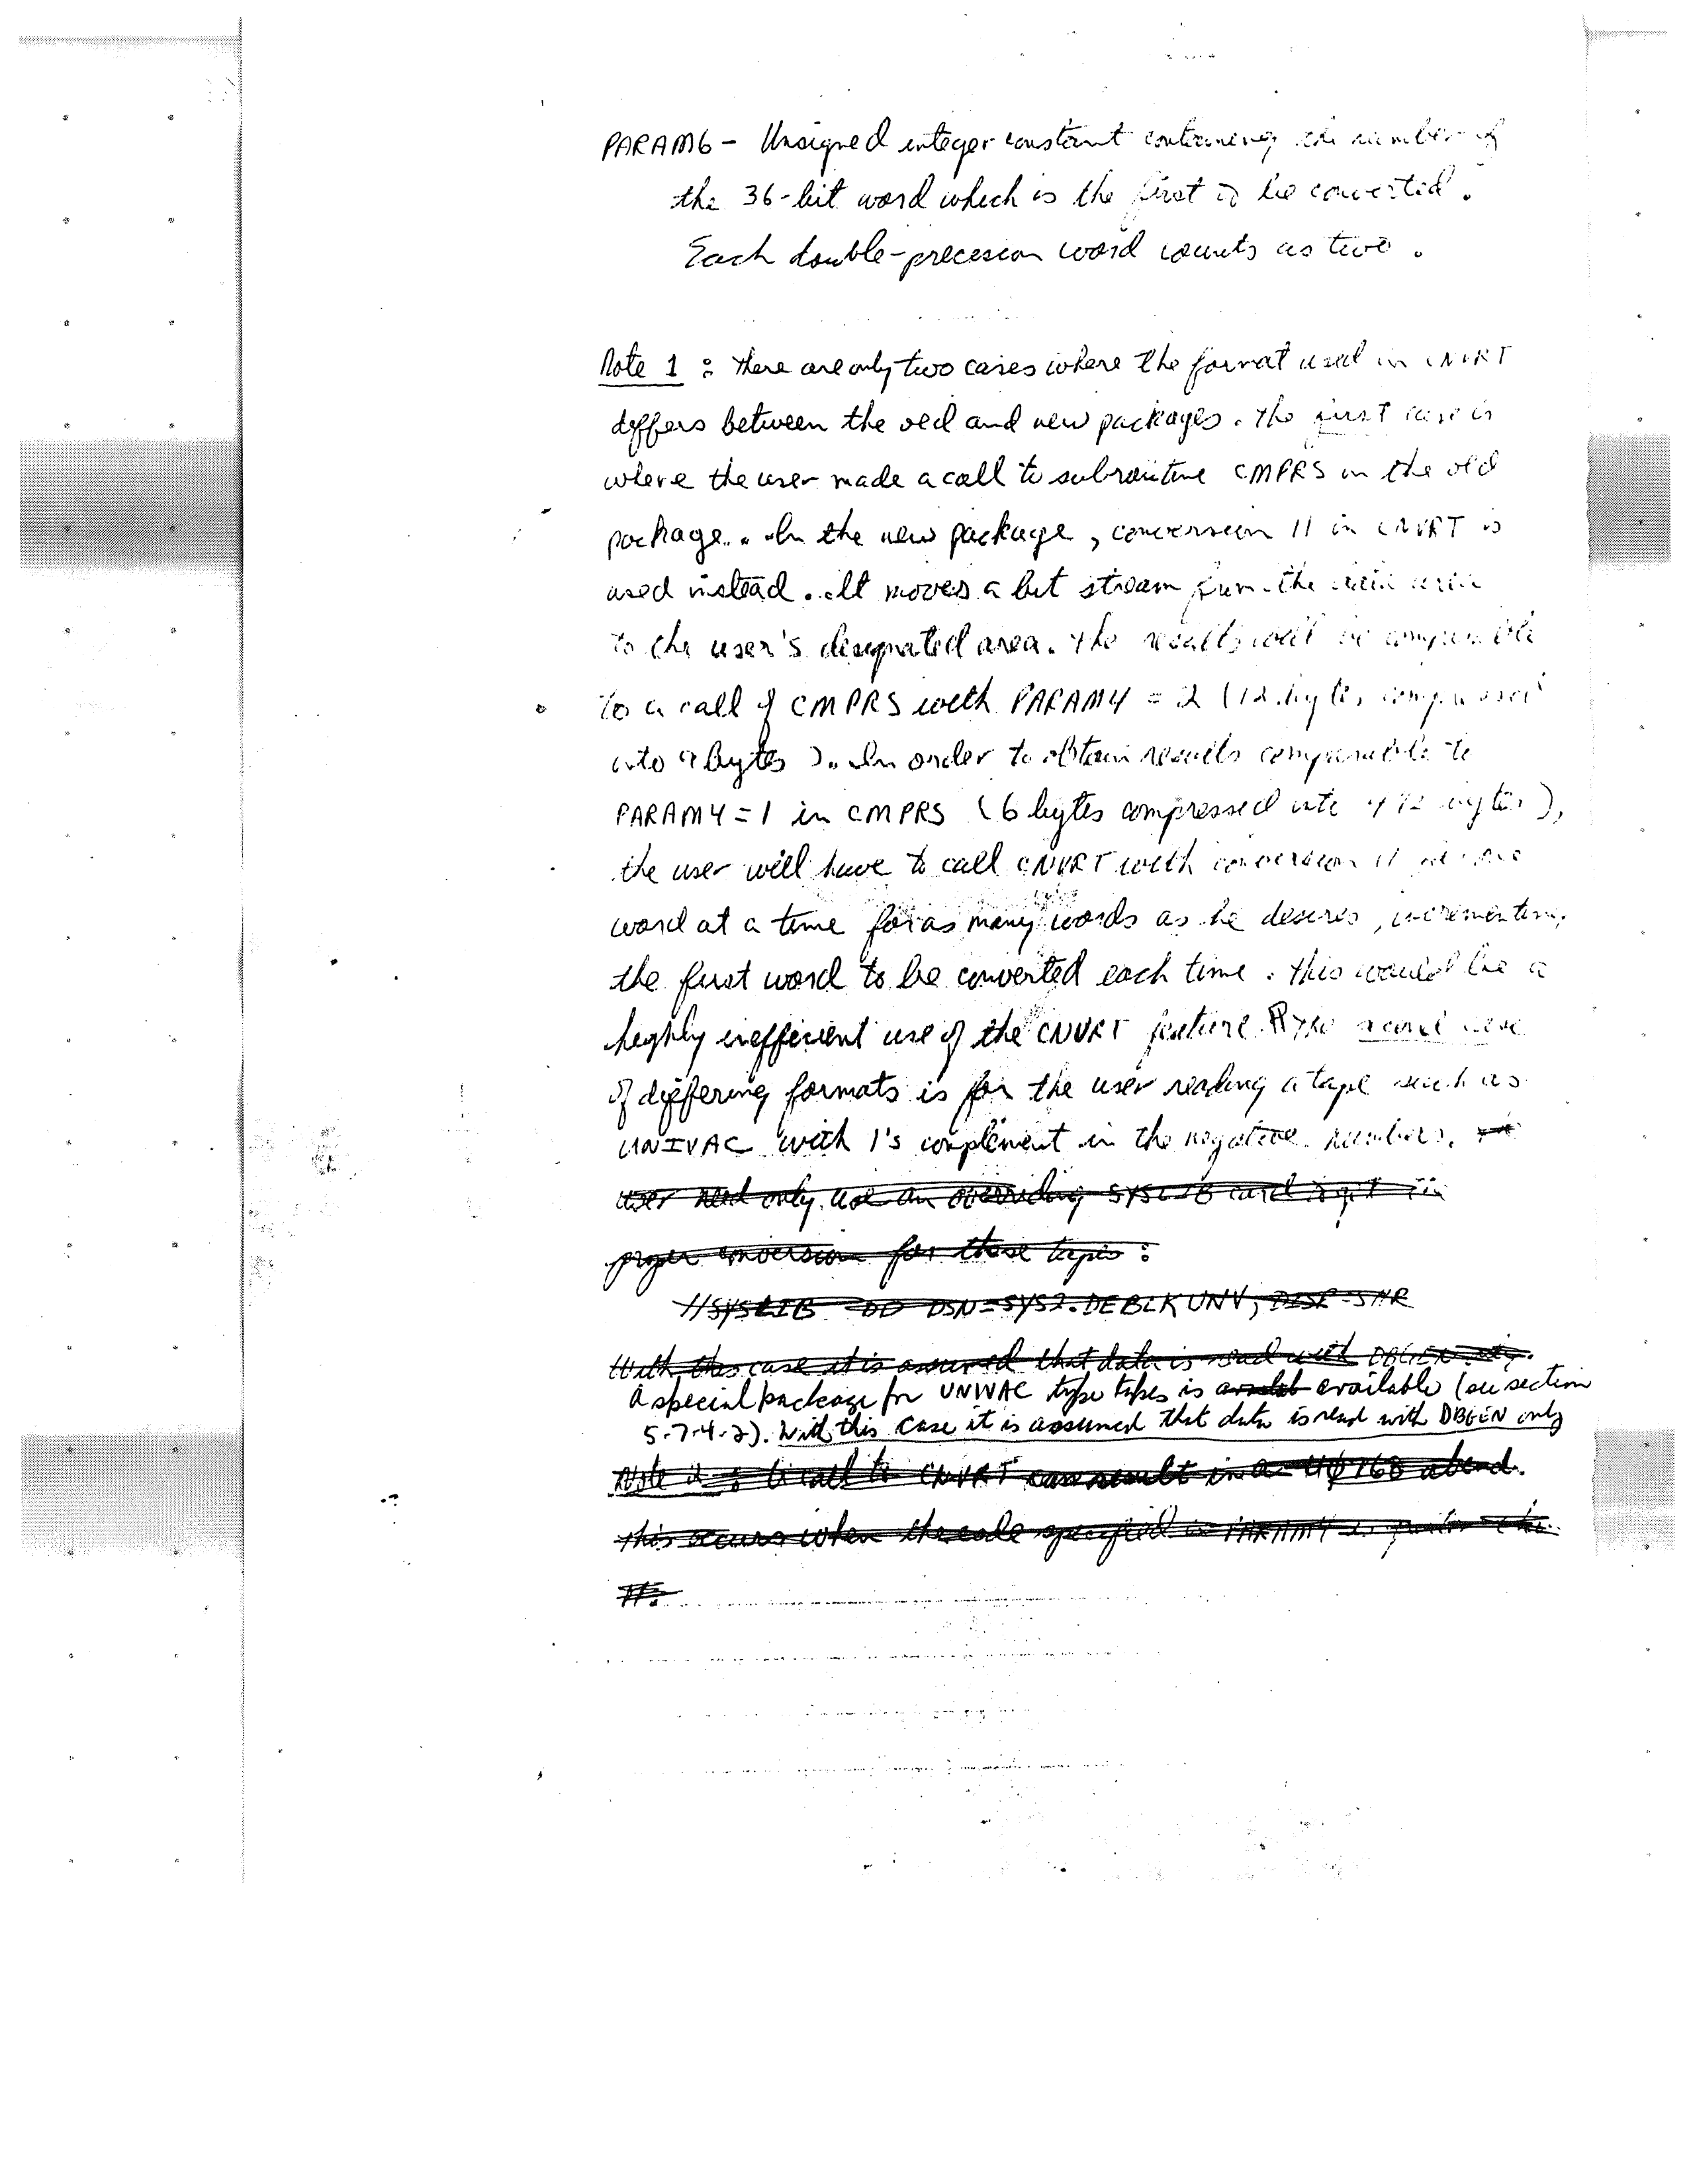 PARAM6 - Unsigned integer constant containing the number of
the 36-bit word which is the first to be converted.
Each double-precision word counts as two.
Note 1 : There are only two cases where the format used in CNVRT
differs between the old and new packages. The first case is
where the user made a call to subroutine CMPRS in the old
package. In the new package, conversion 11 in CNVRT is
used instead. It moves a bit stream from the
to the user's designated area. The results will be comparable
to a call of CMPRS with PARAM4 = 2 (12 bytes compressed
into 9 bytes). In order to obtain results comparable to
PARAM4 = 1 in CMPRS (6 bytes compressed into 4 1/2 bytes),
the user will have to call CNVRT with conversion 11 one
word at a time for as many words as he desires, incrementing
the first word to be converted each time. This would be a
highly inefficient use of the CNVRT feature. The second case
of differing formats is for the user reading a tape such as
UNIVAC with 1's complement in the negative numbers.
user need only use an overriding SYSLIB card to get
proper conversion for these tapes :
//SYSLIB DD DSN=SYS2.DEBLKUNV, DISP=SHR
With this case it is assumed that data is read with DBGEN only.
A special package for UNIVAC type tapes is available (see section
5-7-4-2). With this case it is assumed that data is read with DBGEN only
Note 2 : A call to CNVRT can result in a abend.
This occurs when the code specified in PARAM4 is greater than
11.